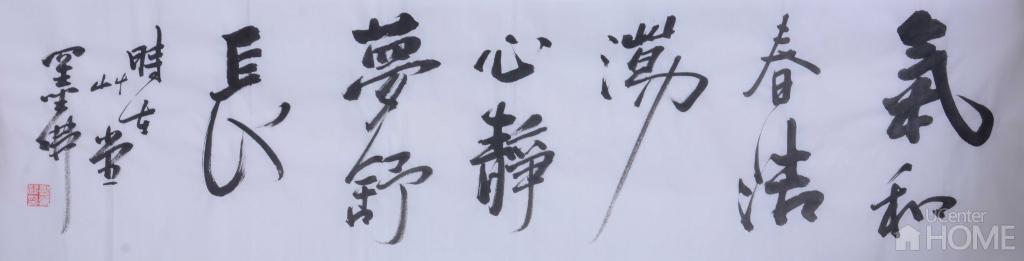 氣和
春浩
蕩
心靜
夢舒
長
時
堂
UCenter
HOME